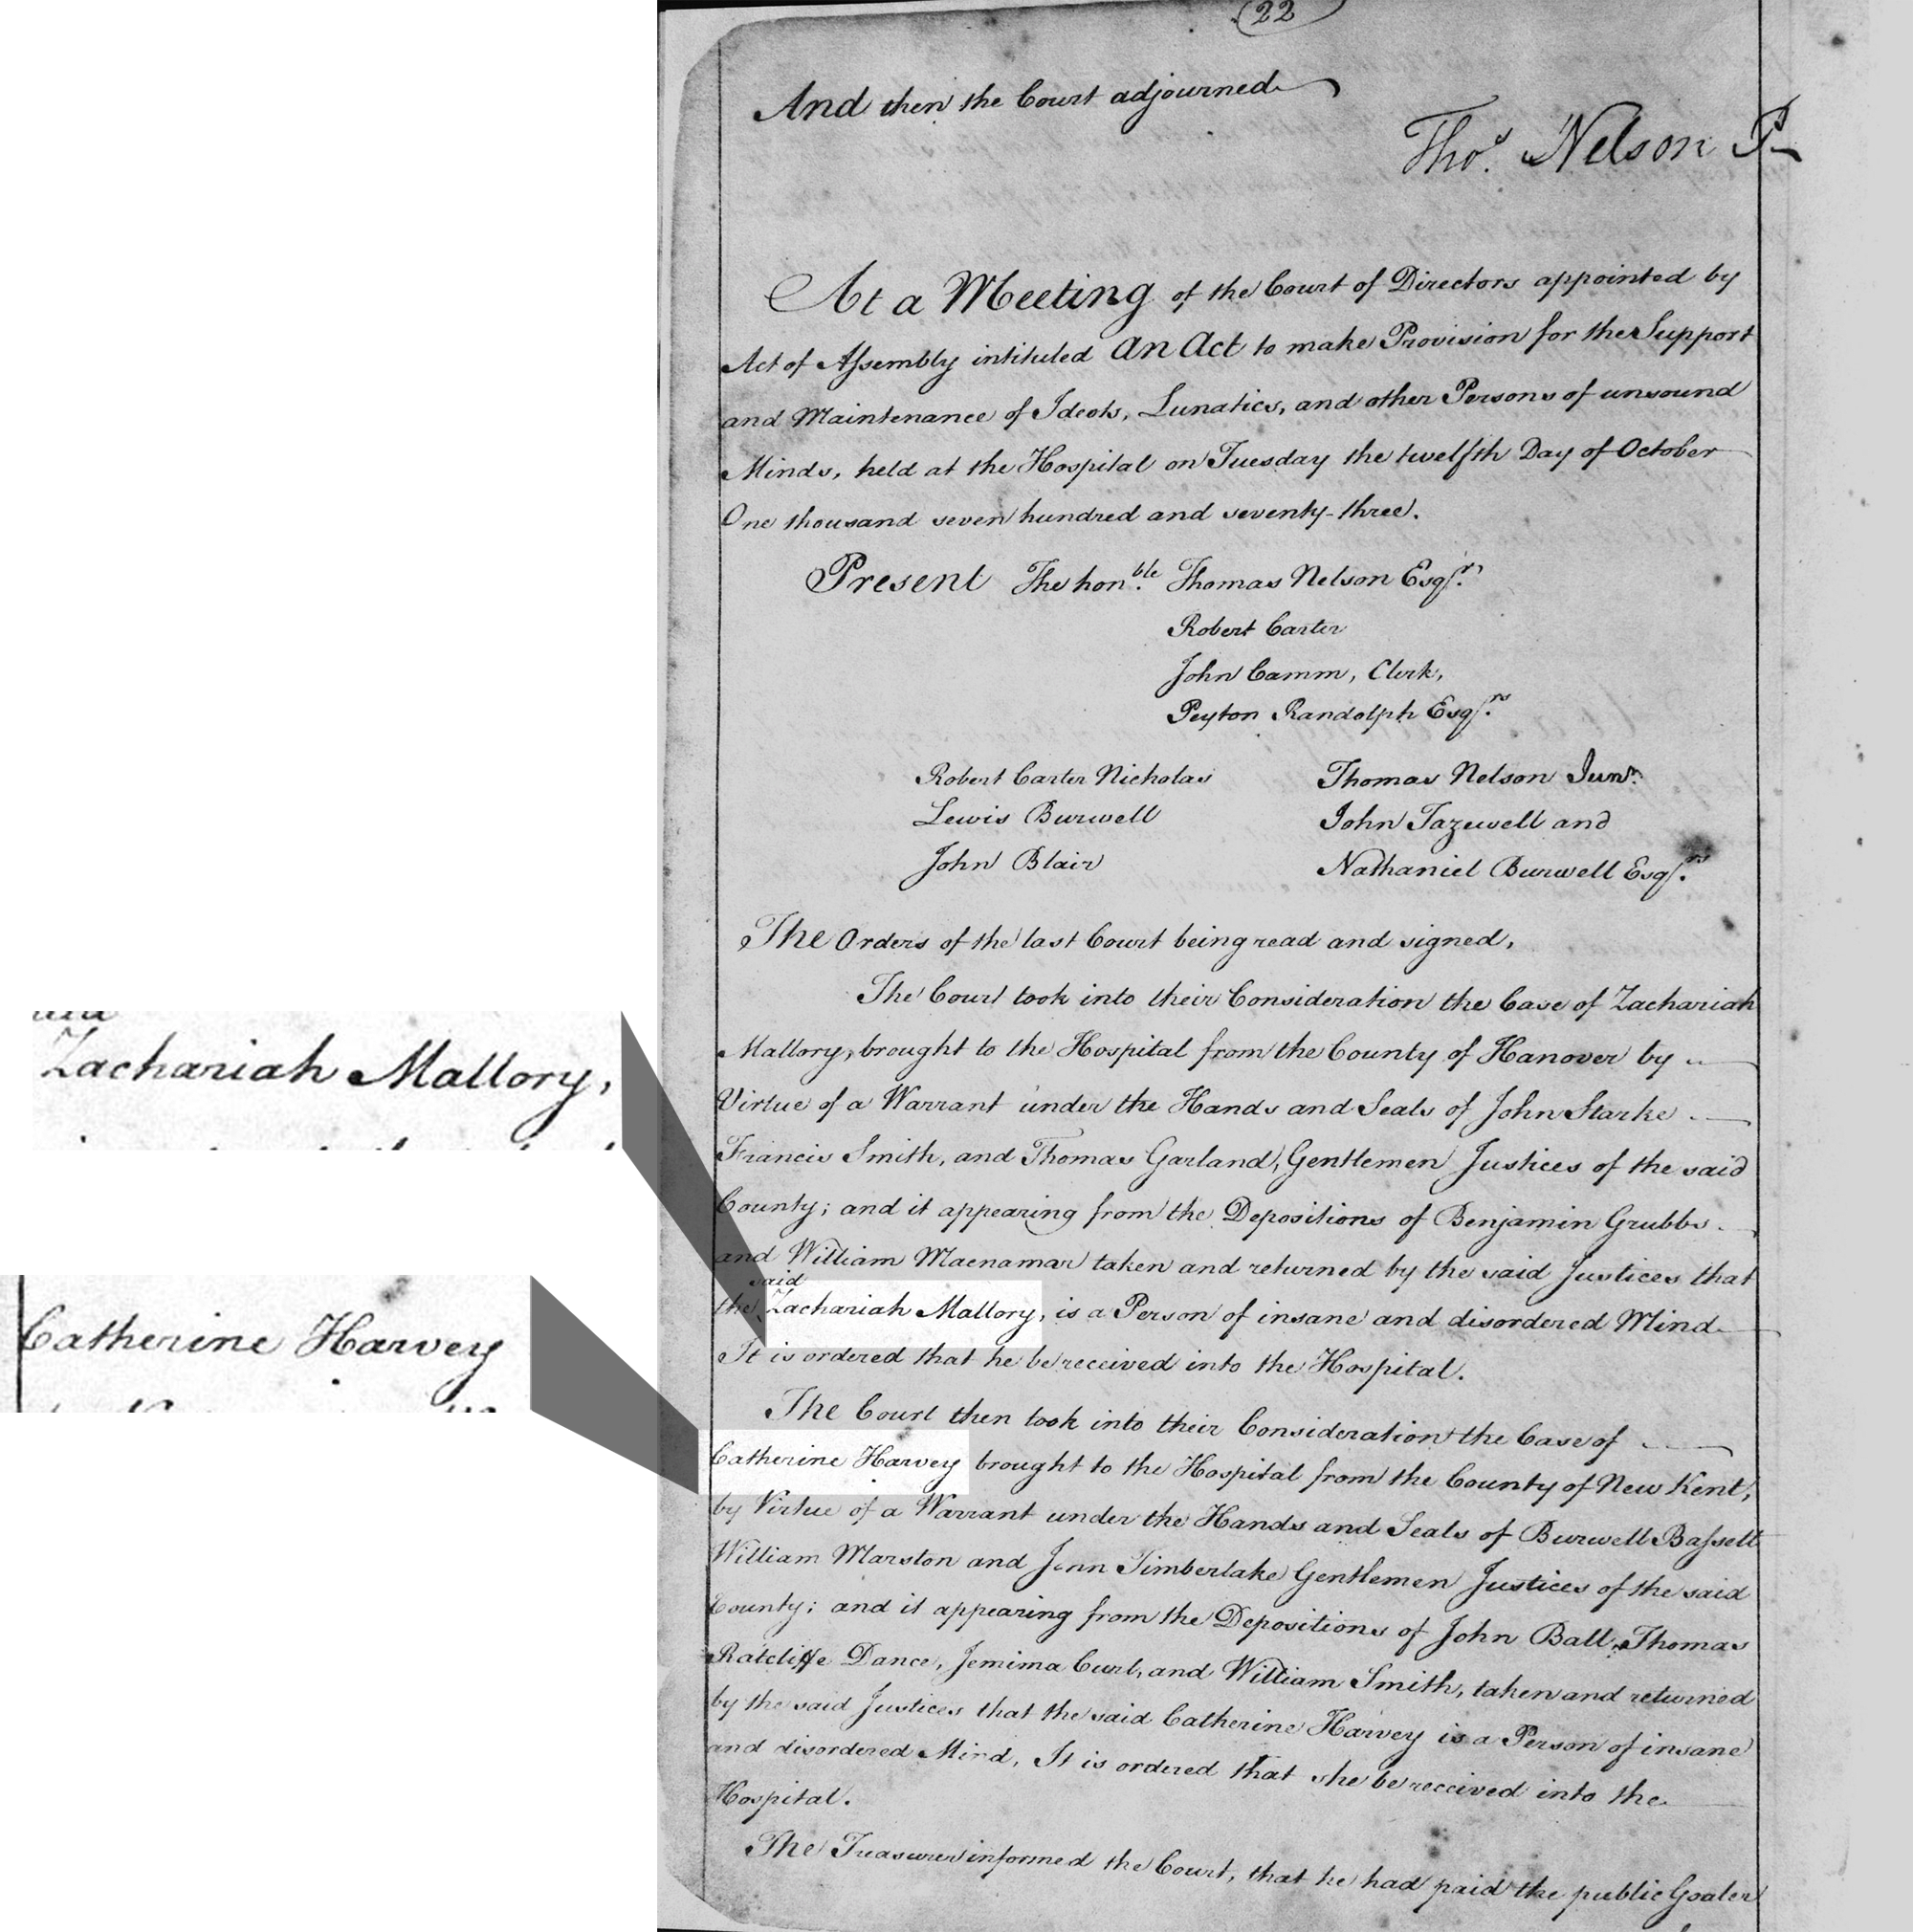 22
And then the Court adjourned
Thos. Nelson P
At a Meeting of the Court of Directors appointed by
Act of Assembly intituled An Act to make Provision for the Support
and Maintenance of Ideots, Lunatics, and other Persons of unsound
Minds, held at the Hospital on Tuesday the twelfth Day of October
One thousand seven hundred and seventy-three.
Present The honble. Thomas Nelson Esqr.
Robert Carter
John Camm, Clerk,
Peyton Randolph Esqrs.
Robert Carter Nicholas Thomas Nelson Junr.
Lewis Burwell John Tazewell and
John Blair Nathaniel Burwell Esqrs.
The Orders of the last Court being read and signed,
The Court took into their Consideration the Case of Zachariah
Mallory, brought to the Hospital from the County of Hanover by
Virtue of a Warrant under the Hands and Seals of John Starke
Francis Smith, and Thomas Garland, Gentlemen Justices of the said
County; and it appearing from the Depositions of Benjamin Grubbs
and William Macnamar taken and returned by the said Justices that
the said Zachariah Mallory, is a Person of insane and disordered Mind
It is ordered that he be received into the Hospital.
The Court then took into their Consideration the Case of
Catherine Harvey brought to the Hospital from the County of New Kent,
by Virtue of a Warrant under the Hands and Seals of Burwell Bassett
William Marston and John Timberlake Gentlemen Justices of the said
County; and it appearing from the Depositions of John Ball, Thomas
Ratcliffe Dance, Jemima Curl, and William Smith, taken and returned
by the said Justices that the said Catherine Harvey is a Person of insane
and disordered Mind, It is ordered that she be received into the
Hospital.
The Treasurer informed the Court, that he had paid the public Goaler
Zachariah Mallory,
Catherine Harvey